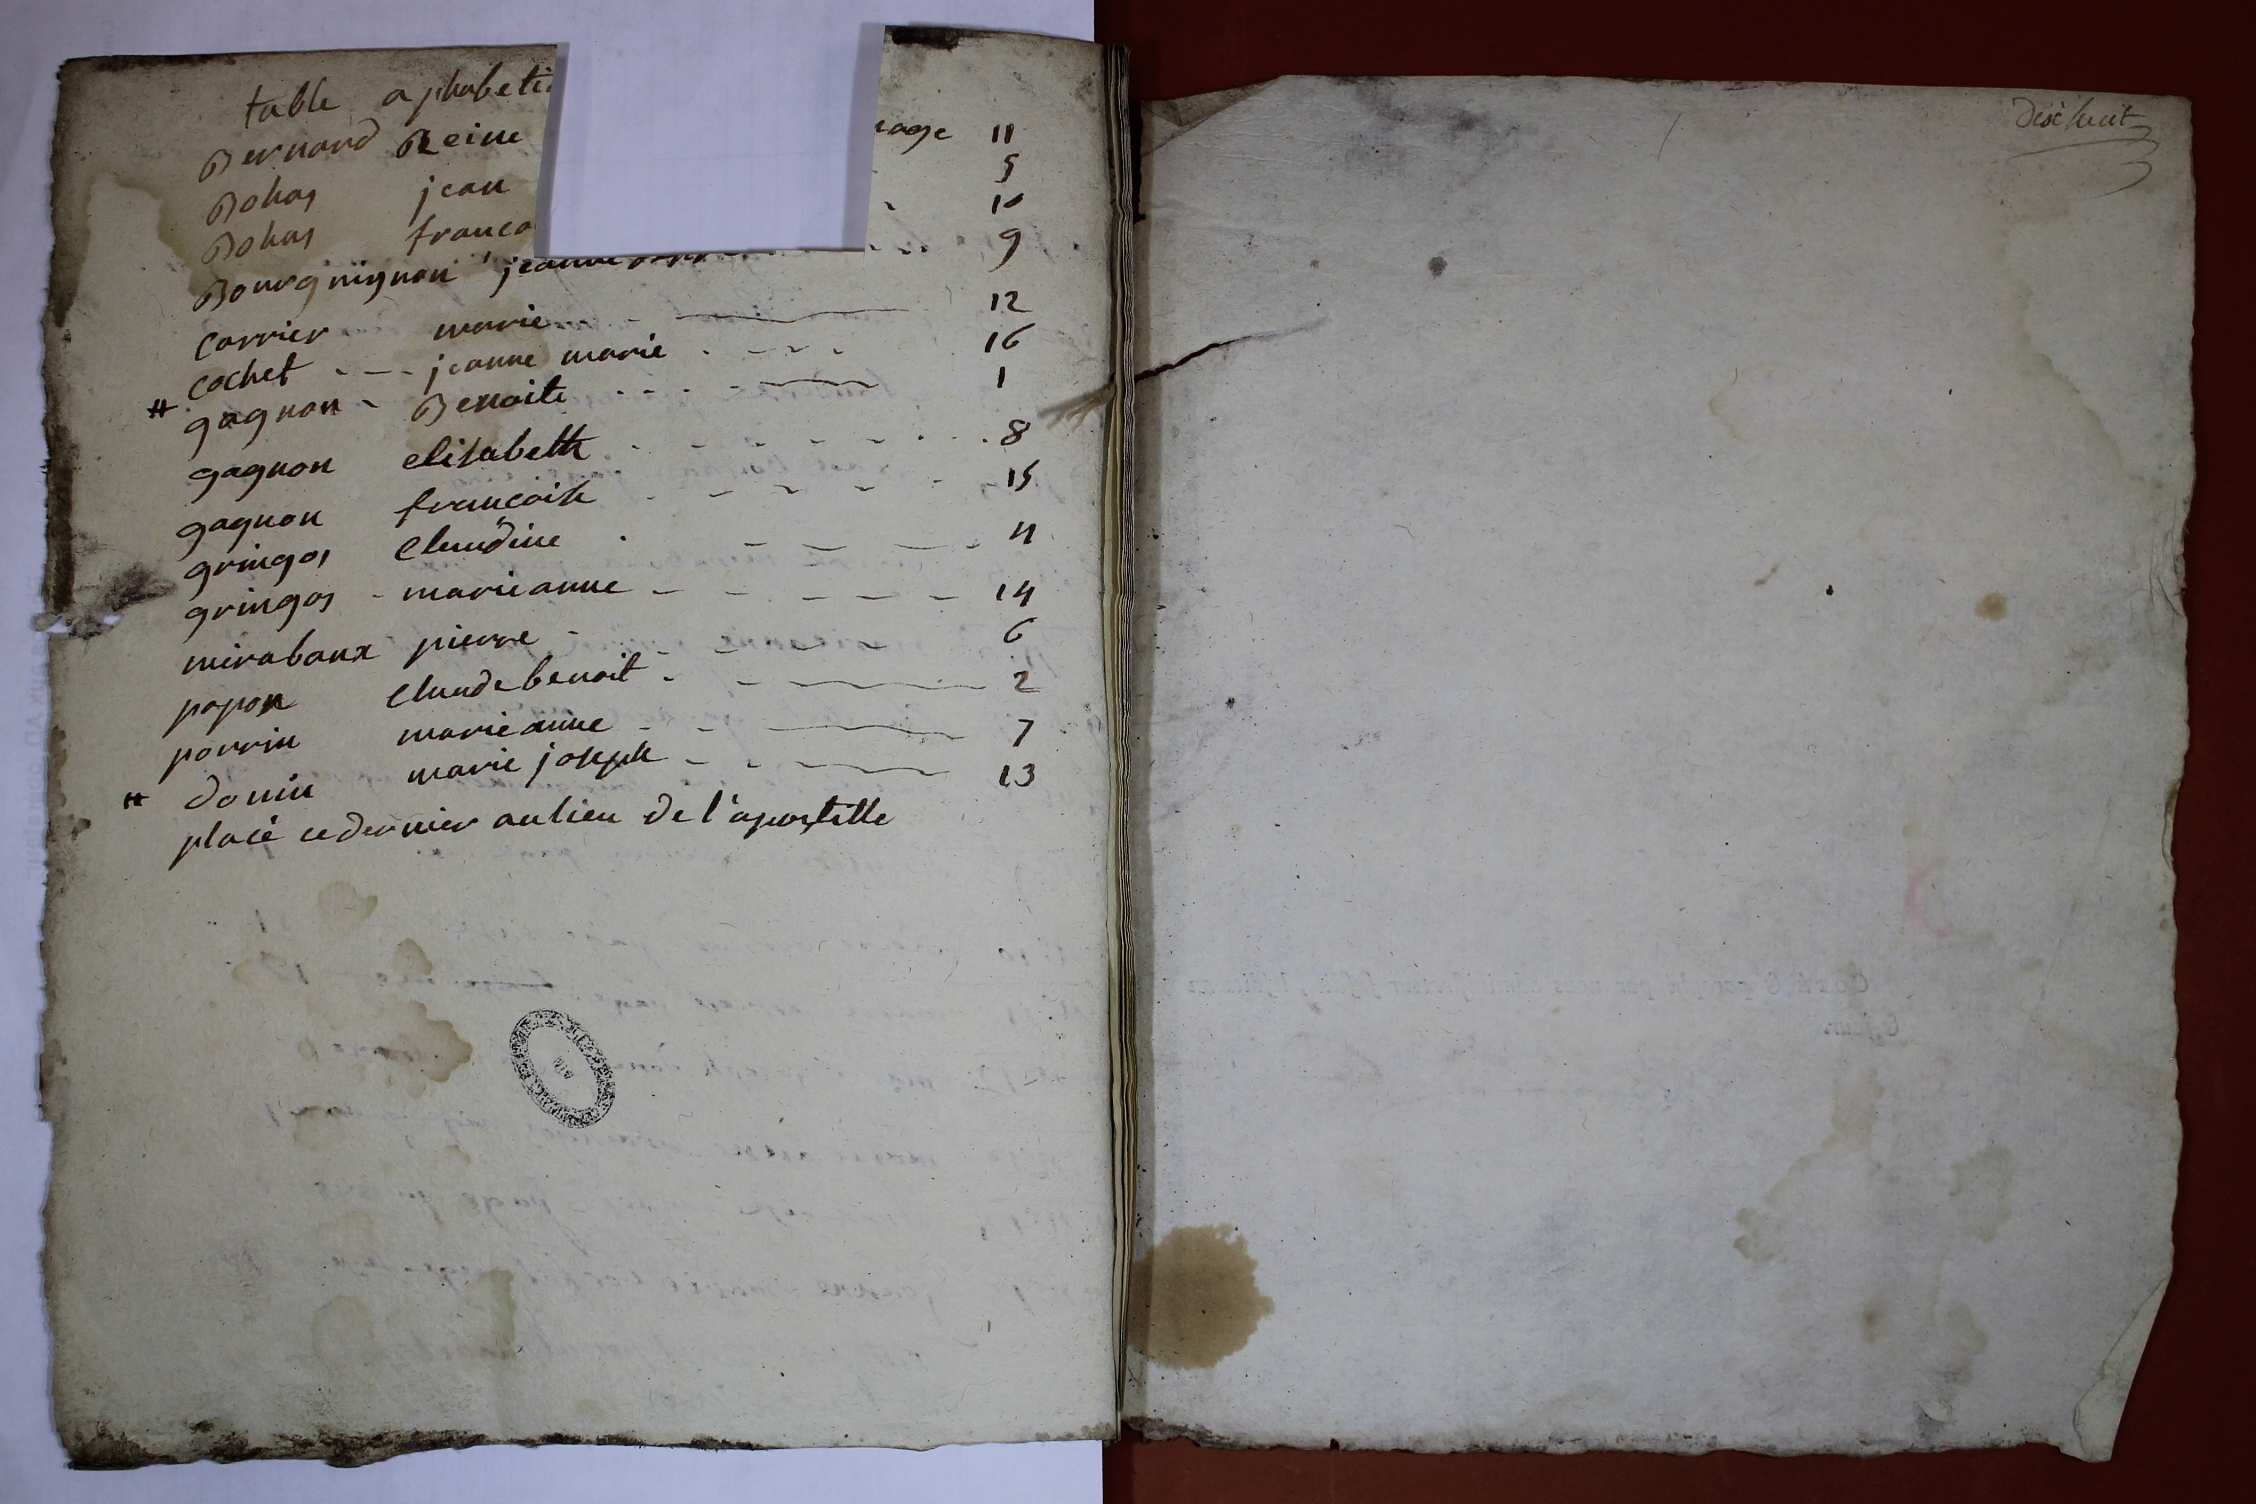 table aphabeti
Bernard Reine page 11
Bohas jean 5
Bohas franco 10
Bourguignon jeanne 9
carrier marie 12
cochet jeanne marie 16
# gagnon Benoite 1
gagnon elisabeth 8
gagnon francoise 15
gringos Claudine 4
gringos marie anne 14
mirabaux pierre 6
popon Claude benoit 2
porrin marie anne 7
# donin marie joseph 13
placé ce dernier au lieu de l'apostille
dix huit